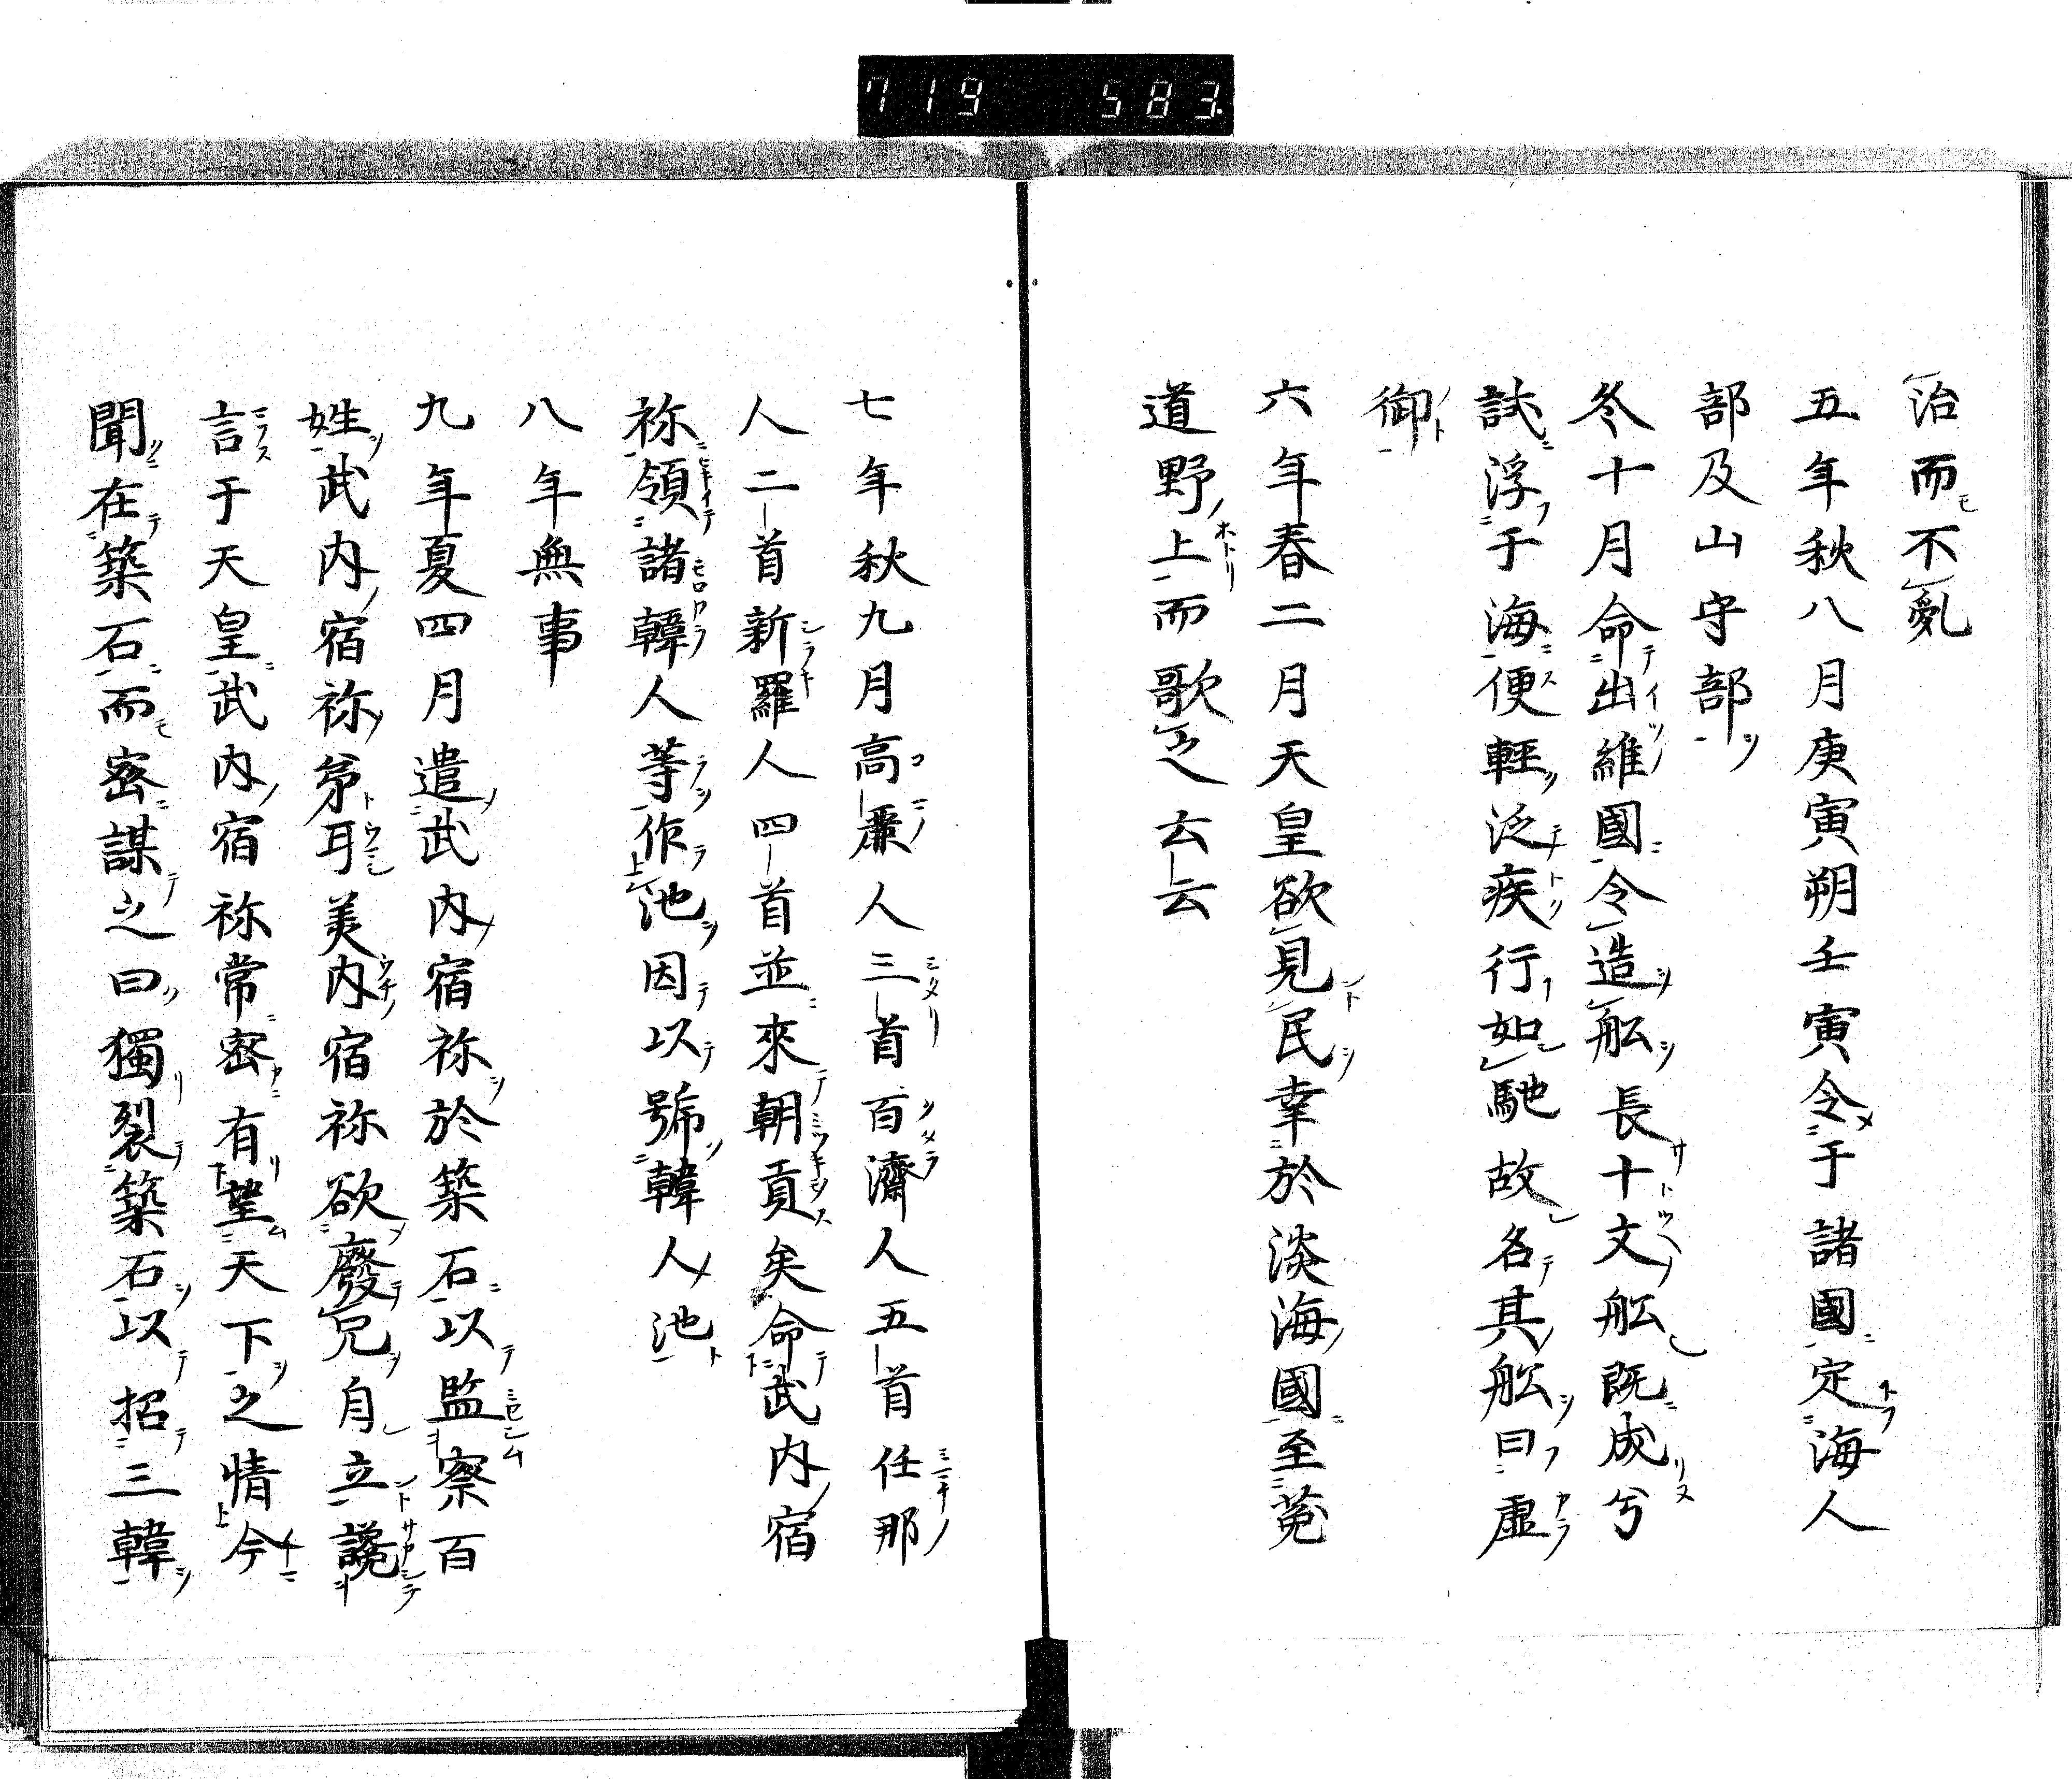 719 583
治而不亂
五年秋八月庚寅朔壬寅令于諸國定海人
部及山守部
冬十月命出維國令造舩長十文舩既成兮
試浮于海便輕泛疾行如馳故名其舩曰虛
御
六年春二月天皇欲見民幸於淡海國至菟
道野上而歌之云云
七年秋九月高麗人三首百濟人五首任那
人二首新羅人四首並來朝貢矣命武内宿
祢領諸韓人等作池因以號韓人池
八年無事
九年夏四月遣武内宿祢於築石以監察百
姓武内宿祢弟耳美内宿祢欲廢兄自立讒
言于天皇武内宿祢常密有望天下之情今
聞在築石而密謀之曰獨裂築石以招三韓